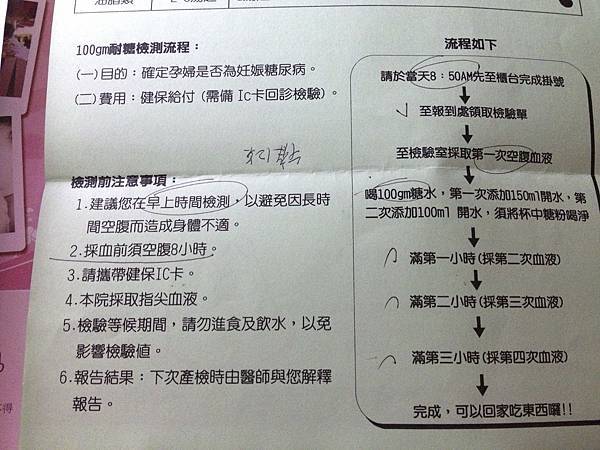 100gm耐糖檢測流程：
(一)目的：確定孕婦是否為妊娠糖尿病。
(二)費用：健保給付 (需備 Ic卡回診檢驗)。
檢測前注意事項：
1.建議您在早上時間檢測，以避免因長時
間空腹而造成身體不適。
2.採血前須空腹8小時。
3.請攜帶健保IC卡。
4.本院採取指尖血液。
5.檢驗等候期間，請勿進食及飲水，以免
影響檢驗值。
6.報告結果：下次產檢時由醫師與您解釋
報告。
流程如下
請於當天8：50AM先至櫃台完成掛號
至報到處領取檢驗單
至檢驗室採取第一次空腹血液
喝100gm糖水，第一次添加150ml開水，第
二次添加100ml 開水，須將杯中糖粉喝淨
滿第一小時(採第二次血液)
滿第二小時(採第三次血液)
滿第三小時(採第四次血液)
完成，可以回家吃東西囉!!